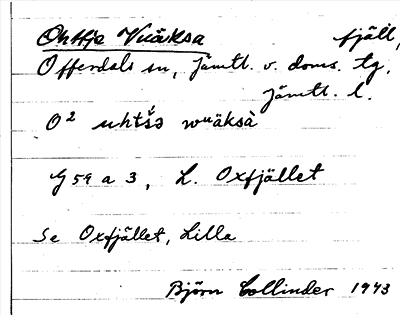 Ohttja Vuäksa fjäll,
Offerdals sn, Jämtl. v. doms. tg.
Jämtl. l.
O² uhtšə wᵘäksà
G 59 a 3, L. Oxfjället
Se Oxfjället, Lilla
Björn Collinder 1943